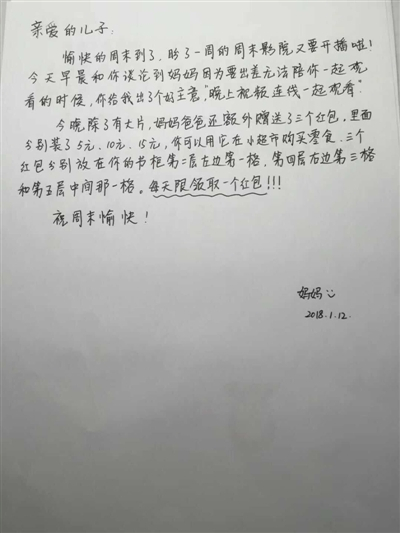 亲爱的儿子：
愉快的周末到了，盼了一周的周末影院又要开播啦！
今天早晨和你谈论到妈妈因为要出差无法陪你一起观
看的时候，你给我出了个好主意，“晚上视频连线一起观看”
今晚除了有大片，妈妈爸爸还额外赠送了三个红包，里面
分别装了5元、10元、15元，你可以用它在小超市购买零食。三个
红包分别放在你的书柜第二层左边第一格，第四层右边第三格
和第五层中间那一格。每天限领取一个红包!!!
祝周末愉快！
妈妈
2018.1.12.